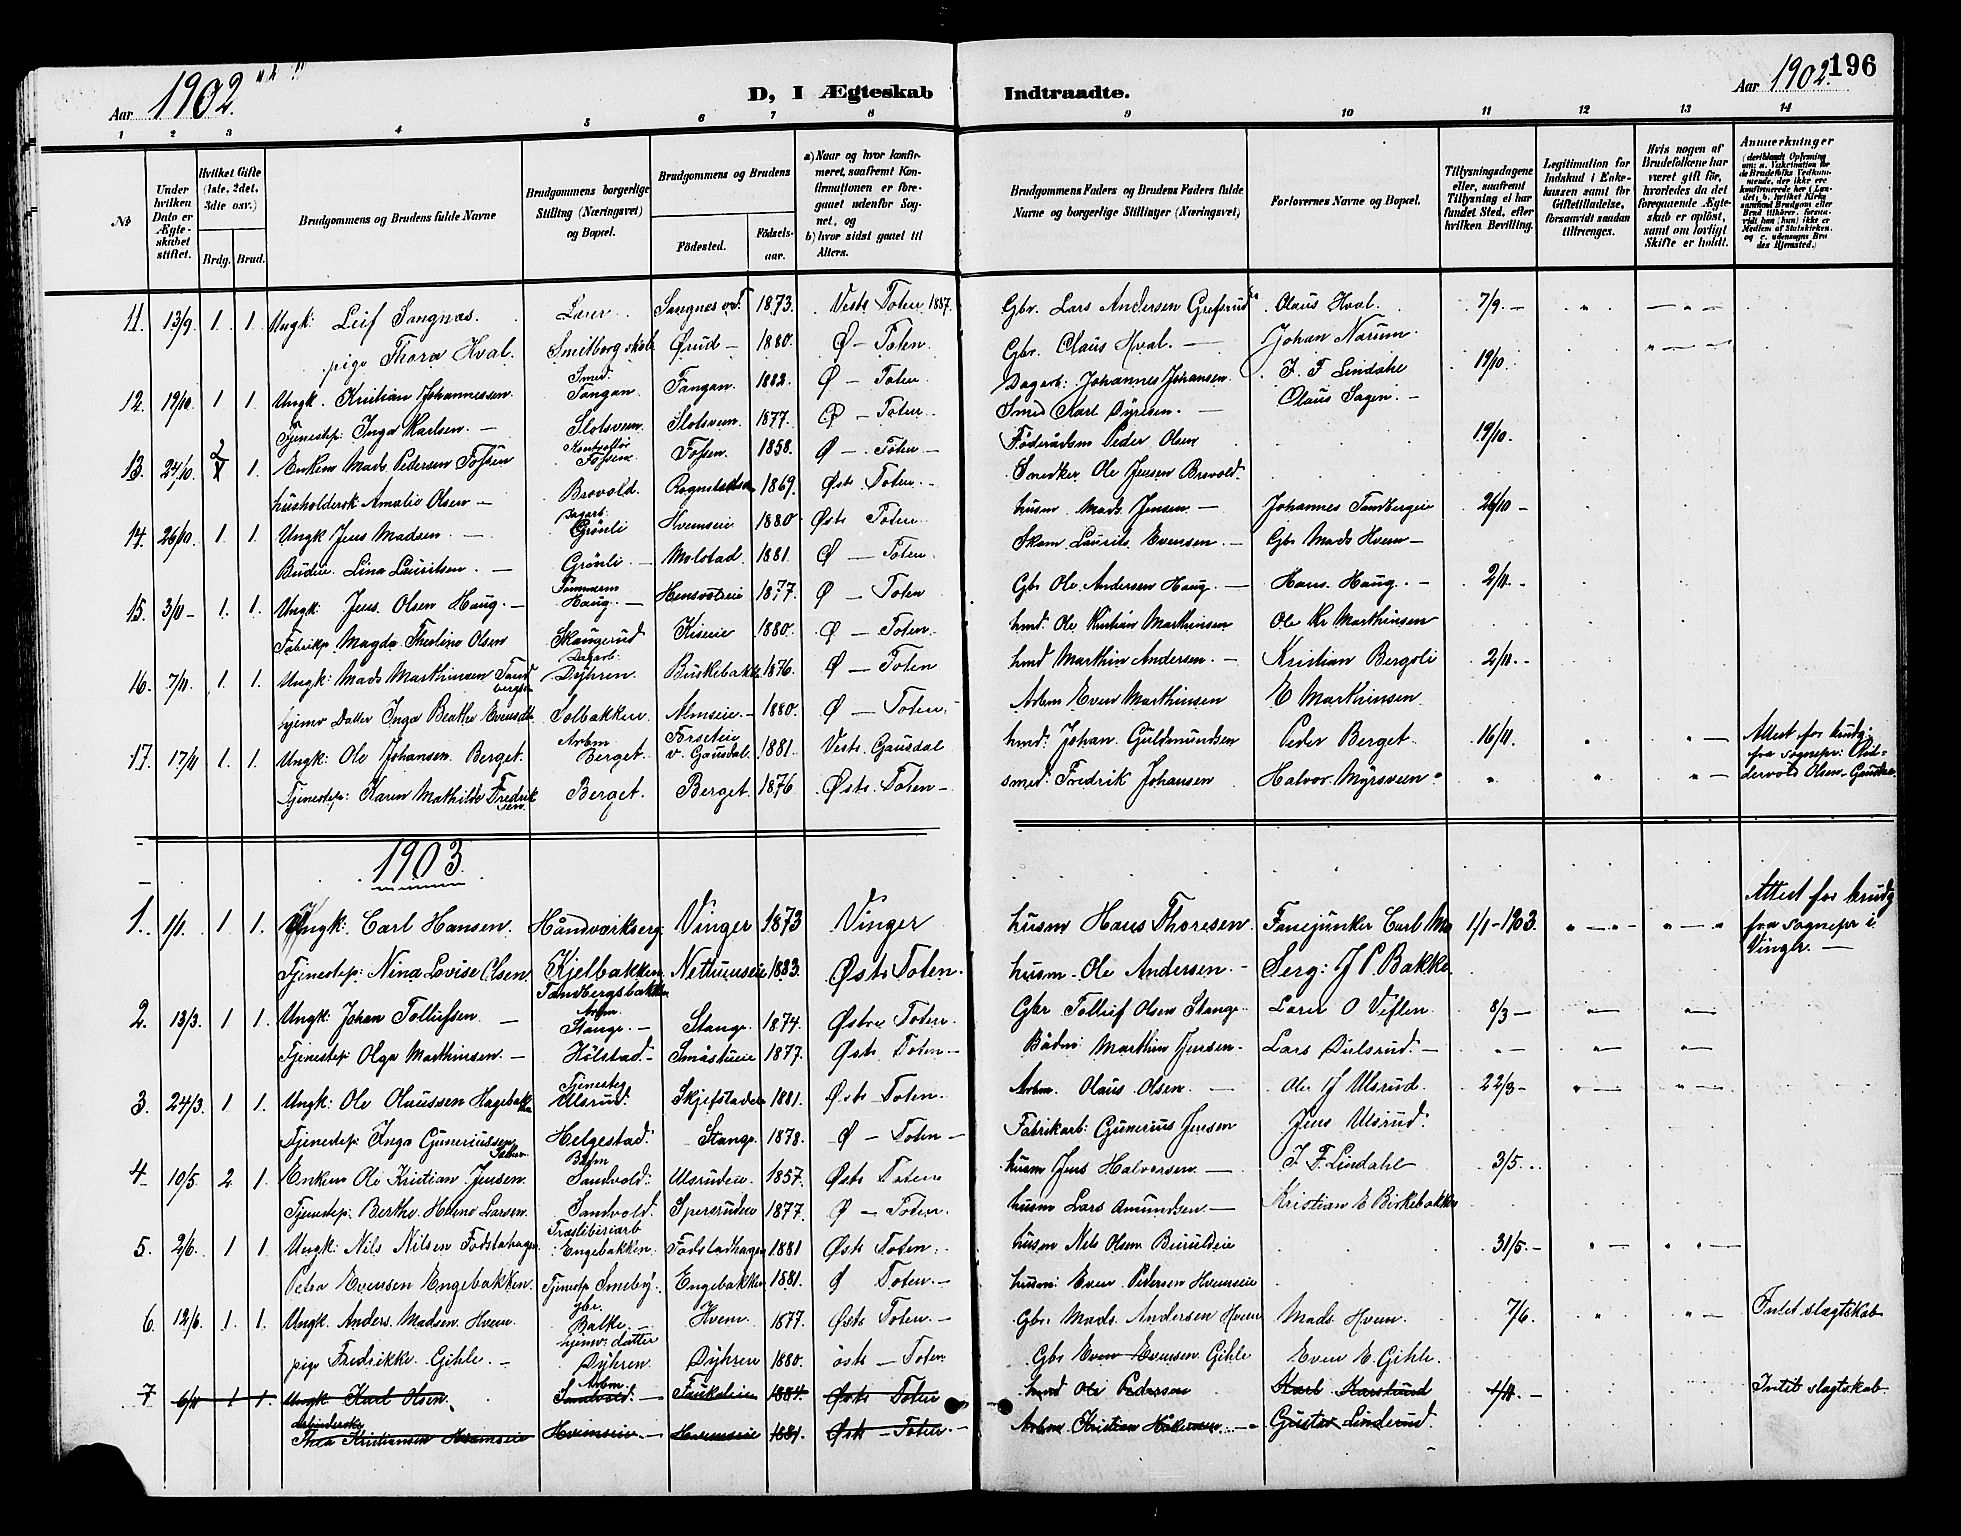 Aar 1902.
D, I Ægteskab Indtraadte.
Aar 1902. 196
1 2 3 4 5 6 7 8 9 10 11 12 13 14
№
Under hvilken Dato er Ægteskabet stiftet.
Hvilket Gifte (1ste, 2det, 3die osv.)
Brdg. Brud.
Brudgommens og Brudens fulde Navne
Brudgommens borgerlige Stilling (Næringsvei) og Bopæl.
Brudgommens og Brudens
Fødested. Fødselsaar.
a) Naar og hvor konfirmeret, saafremt Konfirmationen er foregaaet udenfor Sognet, og
b) hvor sidst gaaet til Alters.
Brudgommens Faders og Brudens Faders fulde Navne og borgerlige Stillinger (Næringsvei)
Forlovernes Navne og Bopæl.
Tillysningsdagene eller, saafremt Tillysning ei har fundet Sted, efter hvilken Bevilling.
Legitimation for Indskud i Enkekassen samt for Giftetilladelse, forsaavidt saadan tiltrænges.
Hvis nogen af Brudefolkene har været gift før, hvorledes da det foregaaende Ægteskab er opløst, samt om lovligt Skifte er holdt.
Anmærkninger
11. 13/9 1. 1. Ungk: Leif Sangnæs. Lærer Sangnes 1873. Vestr Toten 1887. Gbr. Lars Andersen Olaus Hval. 7/9 –
pige Thora Hval. Ørud – 1880. Ø – Toten. Gbr. Claus Hval. – Johan Narum.
12. 19/10 1 1. Ungk. Kristian Johannessen. Smed. Tangan. Tangan. 1882. Ø – Toten. Dagarb: Johannes Johansen. J. F. Lindahl 19/10.
Tjenestep: Inga Karlsen. – Slotsveen. Slotsveen. 1877. Ø – Toten. Smed Karl Dyresen. – Olaus Sagen. –
13. 24/10 2 1. Enkem Mads Pedersen Fossen Fossen Fossen. 1858. Ø – Toten – Føderådsm Peder Olsen 19/10.
husholdersk Amalie Olsen – Brovold. 1869. Østr Toten. Snedker Ole Jensen Brovold.
14. 26/10. 1. 1. Ungk Jens Madsen. – Dagarb: Grönli Hvemseie 1880 Østr Toten. husm Mads Jensen. – Johannes 26/10 –
Budeie. Lina Lauritsen. – Grönli. – Molstad 1881. Ø – Toten. Skom Laurits Evensen. – Gbr Mads Hvem –
15. 3/11 – 1. 1. Ungk: Jens Olsen Haug. – Haug. – 1877. Ø – Toten Gbr Ole Andersen Haug. – Hans Haug. – 2/11. –
Fabrikp Magda Theline Olsen Skaugerud Kiseie 1880. Ø – Toten. hmd. Ole Kristian Marthinsen Ole Kr Marthinsen
16. 7/11. 1. 1. Ungk: Mads Marthinsen Tandbergseie Dagarb: Dyhren. 1876. Ø – Toten hmd Marthin Andersen. – Kristian Bergsli 2/11. –
hjemv Datter Inga Beathe Evensdtr. Solbakken. Almseie. – 1880. Ø – Toten. Arbm Even Marthinsen E Marthinsen.
17. 17/11 1. 1. Ungk: Ole Johansen Berget. Arbm Berget. Forseteie v. Gausdal. 1881. Vestr Gausdal hmd: Johan Guldmundsen Peder Berget. 16/11. Attest for brudg. fra sognepr:
Tjenestep: Karen Mathilde Fredriksen. Berget. Berget. 1876. Østr. Toten – smed: Fredrik Johansen Halvor Myrsveen
1903.
1. 1/1. 1 1. Ungk: Carl Hansen. Håndværkserg. Vinger 1873 Vinger husm Hans Thoresen. Fanejunker Carl Mo 1/1 – 1903. Attest for brudg fra sognepr i Vinger. –
Tjenestep: Nina Lovise Olsen. Kjelbakken Nettumseie 1883. Østr Toten. husm – Ole Andersen. – Serg: J P Bakke
2. 13/3. 1 1. Ungk: Johan Tollefsen – Arbm. Stange – Stange. 1874. Østre Toten. Gbr Tollef Olsen Stange. Lærer O Veflen. 8/3 –
Tjenestep: Olga Marthinsen. – Hölstad – Småstueie 1877. Østr. Toten – Marthin Jensen. – Lars Dulsrud. –
3. 24/3. 1 1. Ungk: Ole Olaussen Hagebakken Ulsrud. 1881. Østr Toten. Arbm. Olaus Olsen. – Ole J Ulsrud. 22/3 –
Tjenestep: Inga Gunerius.sen Helgestad. Stange. 1878. Ø – Toten – Fabrikarb: Gunerius Jensen Jens Ulsrud.
4 – 10/5. 2. 1. Enkem Ole Kristian Jensen. Sandvold. Ulsrudeie. 1857. Østr Toten husm Jens Halvorsen. – J. F. Lindahl 3/5.
Tjenestep: Berthe Helene Larsen. Sandvold. Spersrudeie 1877. Ø – Toten. husm Lars Amundsen. – Kristian E Birkebakken
5. 2/6. 1 1. Ungk: Nils Nilsen Fodstahagen. Træsliberiarb Engebakken. Fodstadhagen 1881 Østr Toten. husm Nils Olsen 31/5. –
Petra Evensen Engebakken. Tjenestep Smeby. Engebakken 1881. Ø Toten. – husm: Even Pedersen Hvemseie
6. 12/6 1 1. Ungk. Anders Madsen Hvem gbr. Balke. – Hvem 1877. Østr Toten. – Gbr: Mads Andersen Hvem Mads Hvem. 7/6. Intet slægtskab
pige Fredrikke Gihle. – hjemv: datter Dyhren. Dyhren 1880. østr – Toten Gbr Even Evensen Gihle Even E. Gihle.
7 6/11 1 1. Ungk Karl Olsen. Arbm Sandvold. – 1884. Østr Toten hmd Ole Pedersen Karl Karslund 1/11. – Intet slægtskab.
Thea Kristiansen Hvemseie Hvemseie. – Hvemseie 1881. Østr – Toten. – Arbm. Kristian Gustav Linderud.